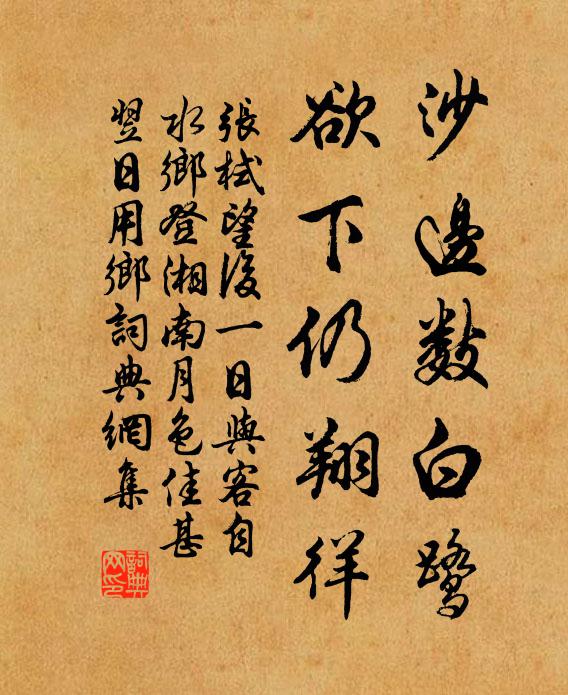 沙邊數白鷺
欲下仍翔徉
張栻望後一日與客自
水鄉登湘南月色佳甚
翌日用鄉詞典網集
詞典網印